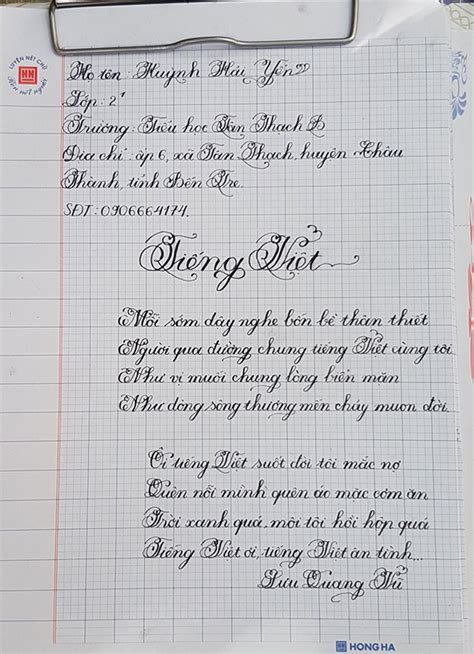 LUYỆN NÉT CHỮ
RÈN NẾT NGƯỜI
HH
Họ tên : Huỳnh Hải Yến
Lớp : 2¹
Trường : Tiểu học Tân Thạch B
Địa chỉ : ấp 6, xã Tân Thạch, huyện Châu
Thành, tỉnh Bến Tre.
SĐT : 0906664174.
Tiếng Việt
Mỗi sớm dậy nghe bốn bề thân thiết
Người qua đường chung tiếng Việt cùng tôi
Như vị muối chung lòng biển mặn
Như dòng sông thương mến chảy muôn đời.
Ôi tiếng Việt suốt đời tôi mắc nợ
Quên nỗi mình quên áo mặc cơm ăn
Trời xanh quá, môi tôi hồi hộp quá
Tiếng Việt ơi, tiếng Việt ân tình...
Lưu Quang Vũ
HH HONG HA